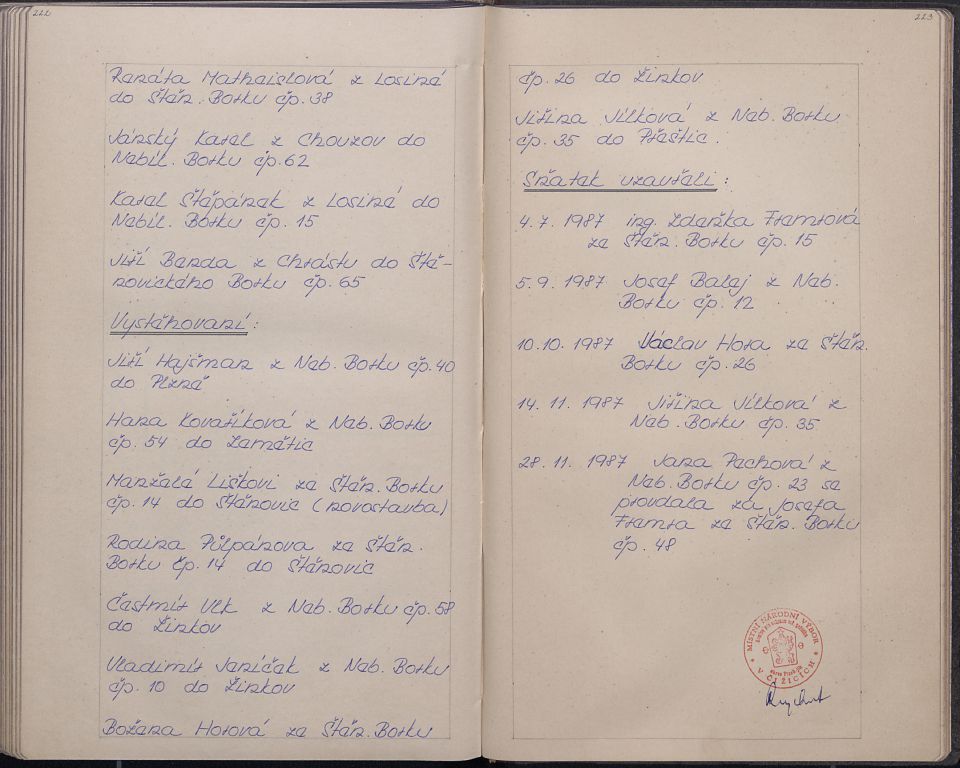 222
Renáta Mathaislová z Losiné
do Štěn. Borku čp. 38
Jánský Karel z Chouzov do
Nebíl. Borku čp. 62
Karel Štěpánek z Losiné do
Nebíl. Borku čp. 15
Jiří Benda z Chrástu do Ště-
novického Borku čp. 65
Vystěhovaní:
Jiří Hajšman z Neb. Borku čp. 40
do Plzně
Hana Kovaříková z Neb. Borku
čp. 54 do Zemětic
Manželé Liškovi ze Štěn. Borku
čp. 14 do Štěnovic (novostavba)
Rodina Půlpánova ze Štěn.
Borku čp. 14 do Štěnovic
Čestmír Vlk z Neb. Borku čp. 58
do Žinkov
Vladimír Janíček z Neb. Borku
čp. 10 do Žinkov
Božena Horová ze Štěn. Borku
223
čp. 26 do Žinkov
Jiřina Jílková z Neb. Borku
čp. 35 do Přeštic.
Sňatek uzavřeli:
4. 7. 1987 ing. Zdeňka Framrová
ze Štěn. Borku čp. 15
5. 9. 1987 Josef Balej z Neb.
Borku čp. 12
10. 10. 1987 Václav Hora ze Štěn.
Borku čp. 26
14. 11. 1987 Jiřina Jílková z
Neb. Borku čp. 35
28. 11. 1987 Jana Pechová z
Neb. Borku čp. 23 se
provdala za Josefa
Framra ze Štěn. Borku
čp. 48
MÍSTNÍ NÁRODNÍ VÝBOR
V ČIŽICÍCH